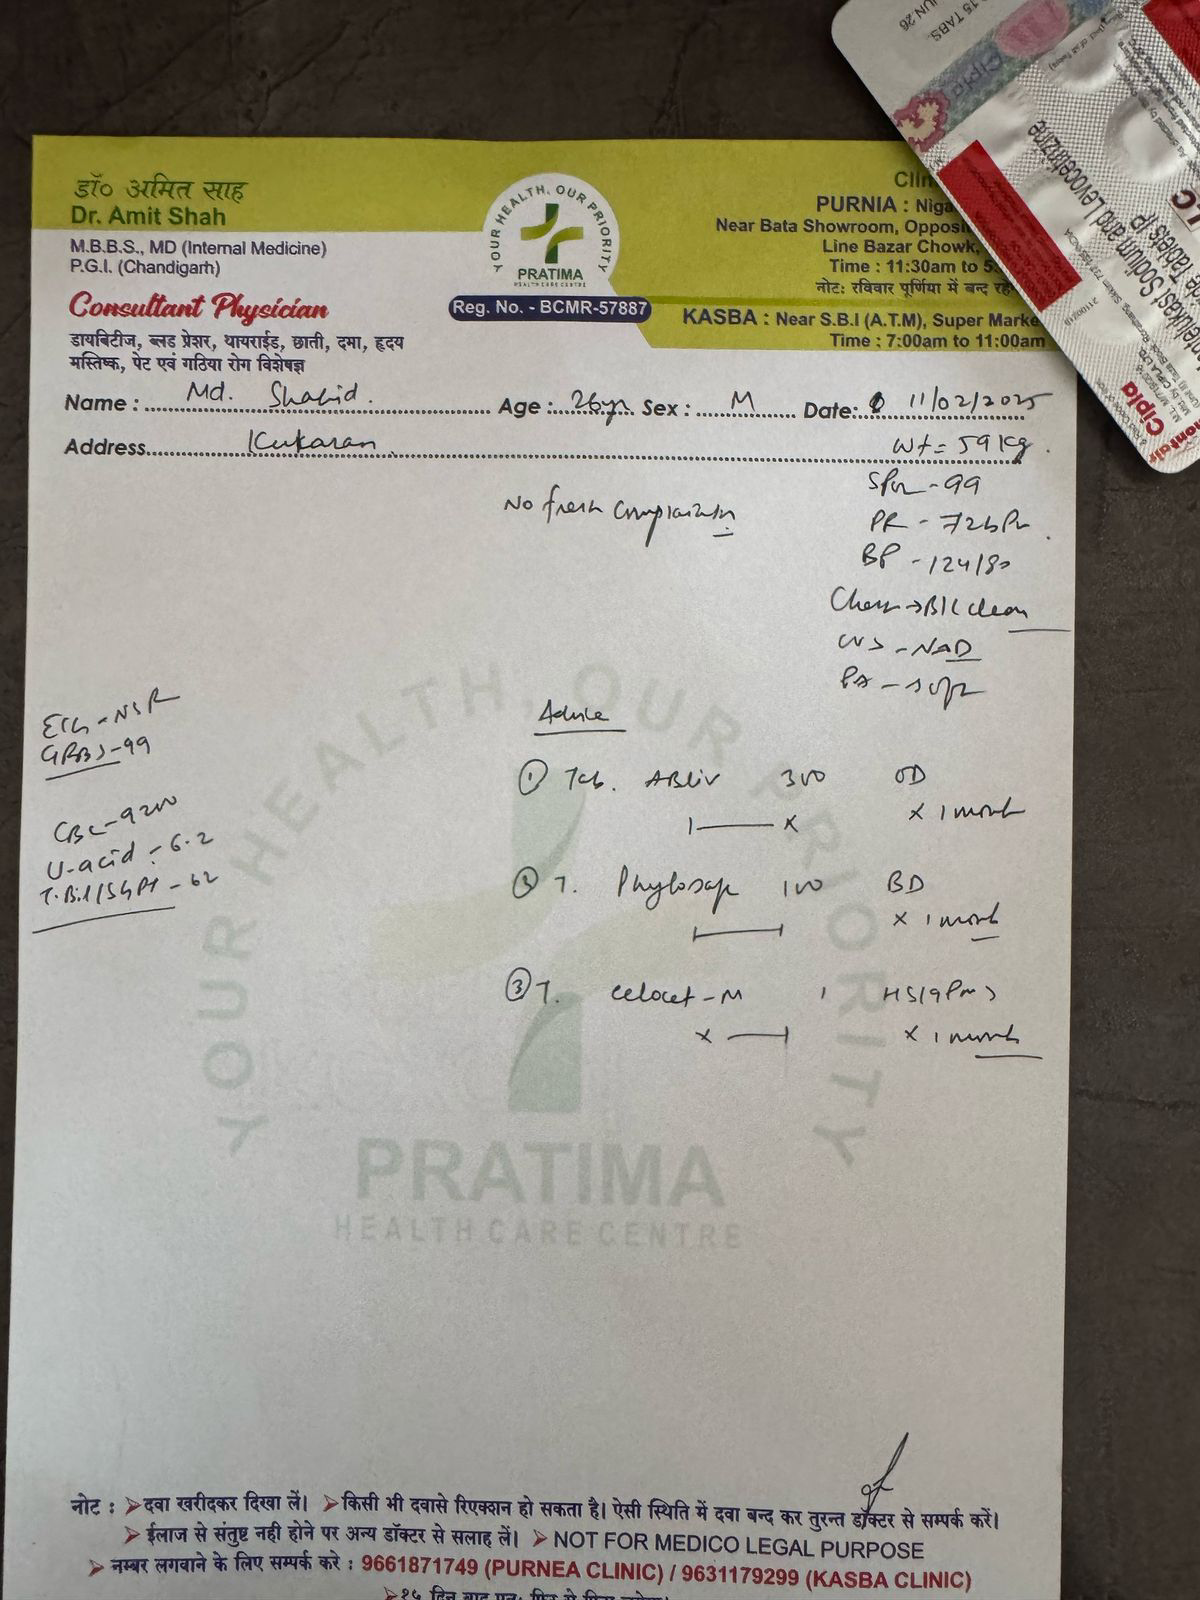 डॉ० अमित साह
Dr. Amit Shah
M.B.B.S., MD (Internal Medicine)
P.G.I. (Chandigarh)
Consultant Physician
डायबिटीज, ब्लड प्रेशर, थायराईड, छाती, दमा, हृदय
मस्तिष्क, पेट एवं गठिया रोग विशेषज्ञ
YOUR HEALTH, OUR PRIORITY
PRATIMA
HEALTH CARE CENTRE
Reg. No. - BCMR-57887
PURNIA :
Near Bata Showroom,
Line Bazar Chowk,
Time : 11:30am to
नोट: रविवार पूर्णिया में बन्द
KASBA : Near S.B.I (A.T.M), Super
Time : 7:00am to 11:00am
15 TABS.
JUN 26
Cipla
Sodium and Levocetirizine
Tablets IP
Cipla
CIPLA LTD.
Name : Md. Shahid. Age : 26yr Sex : M Date: 11/02/2025
Address Kukaran
wt = 59 kg.
No fresh complaints
SPO2 - 99
PR - 72 bPm
BP - 124/80
Chest → B/L clear
CVS - NAD
PA - soft
ECG - NSR
GRBS - 99
CBC - 9200
U-acid - 6.2
T.Bil/SGPT - 62
Advice
① Tab. ABliv 300 OD
1 — x x 1 month
② T. 100 BD
x 1 month
③ T. Celocet - M 1 HS (9 Pm)
x — x 1 month
YOUR HEALTH OUR PRIORITY
PRATIMA
HEALTH CARE CENTRE
नोट : ➢ दवा खरीदकर दिखा लें। ➢ किसी भी दवासे रिएक्शन हो सकता है। ऐसी स्थिति में दवा बन्द कर तुरन्त डॉक्टर से सम्पर्क करें।
➢ ईलाज से संतुष्ट नही होने पर अन्य डॉक्टर से सलाह लें। ➢ NOT FOR MEDICO LEGAL PURPOSE
➢ नम्बर लगवाने के लिए सम्पर्क करे : 9661871749 (PURNEA CLINIC) / 9631179299 (KASBA CLINIC)